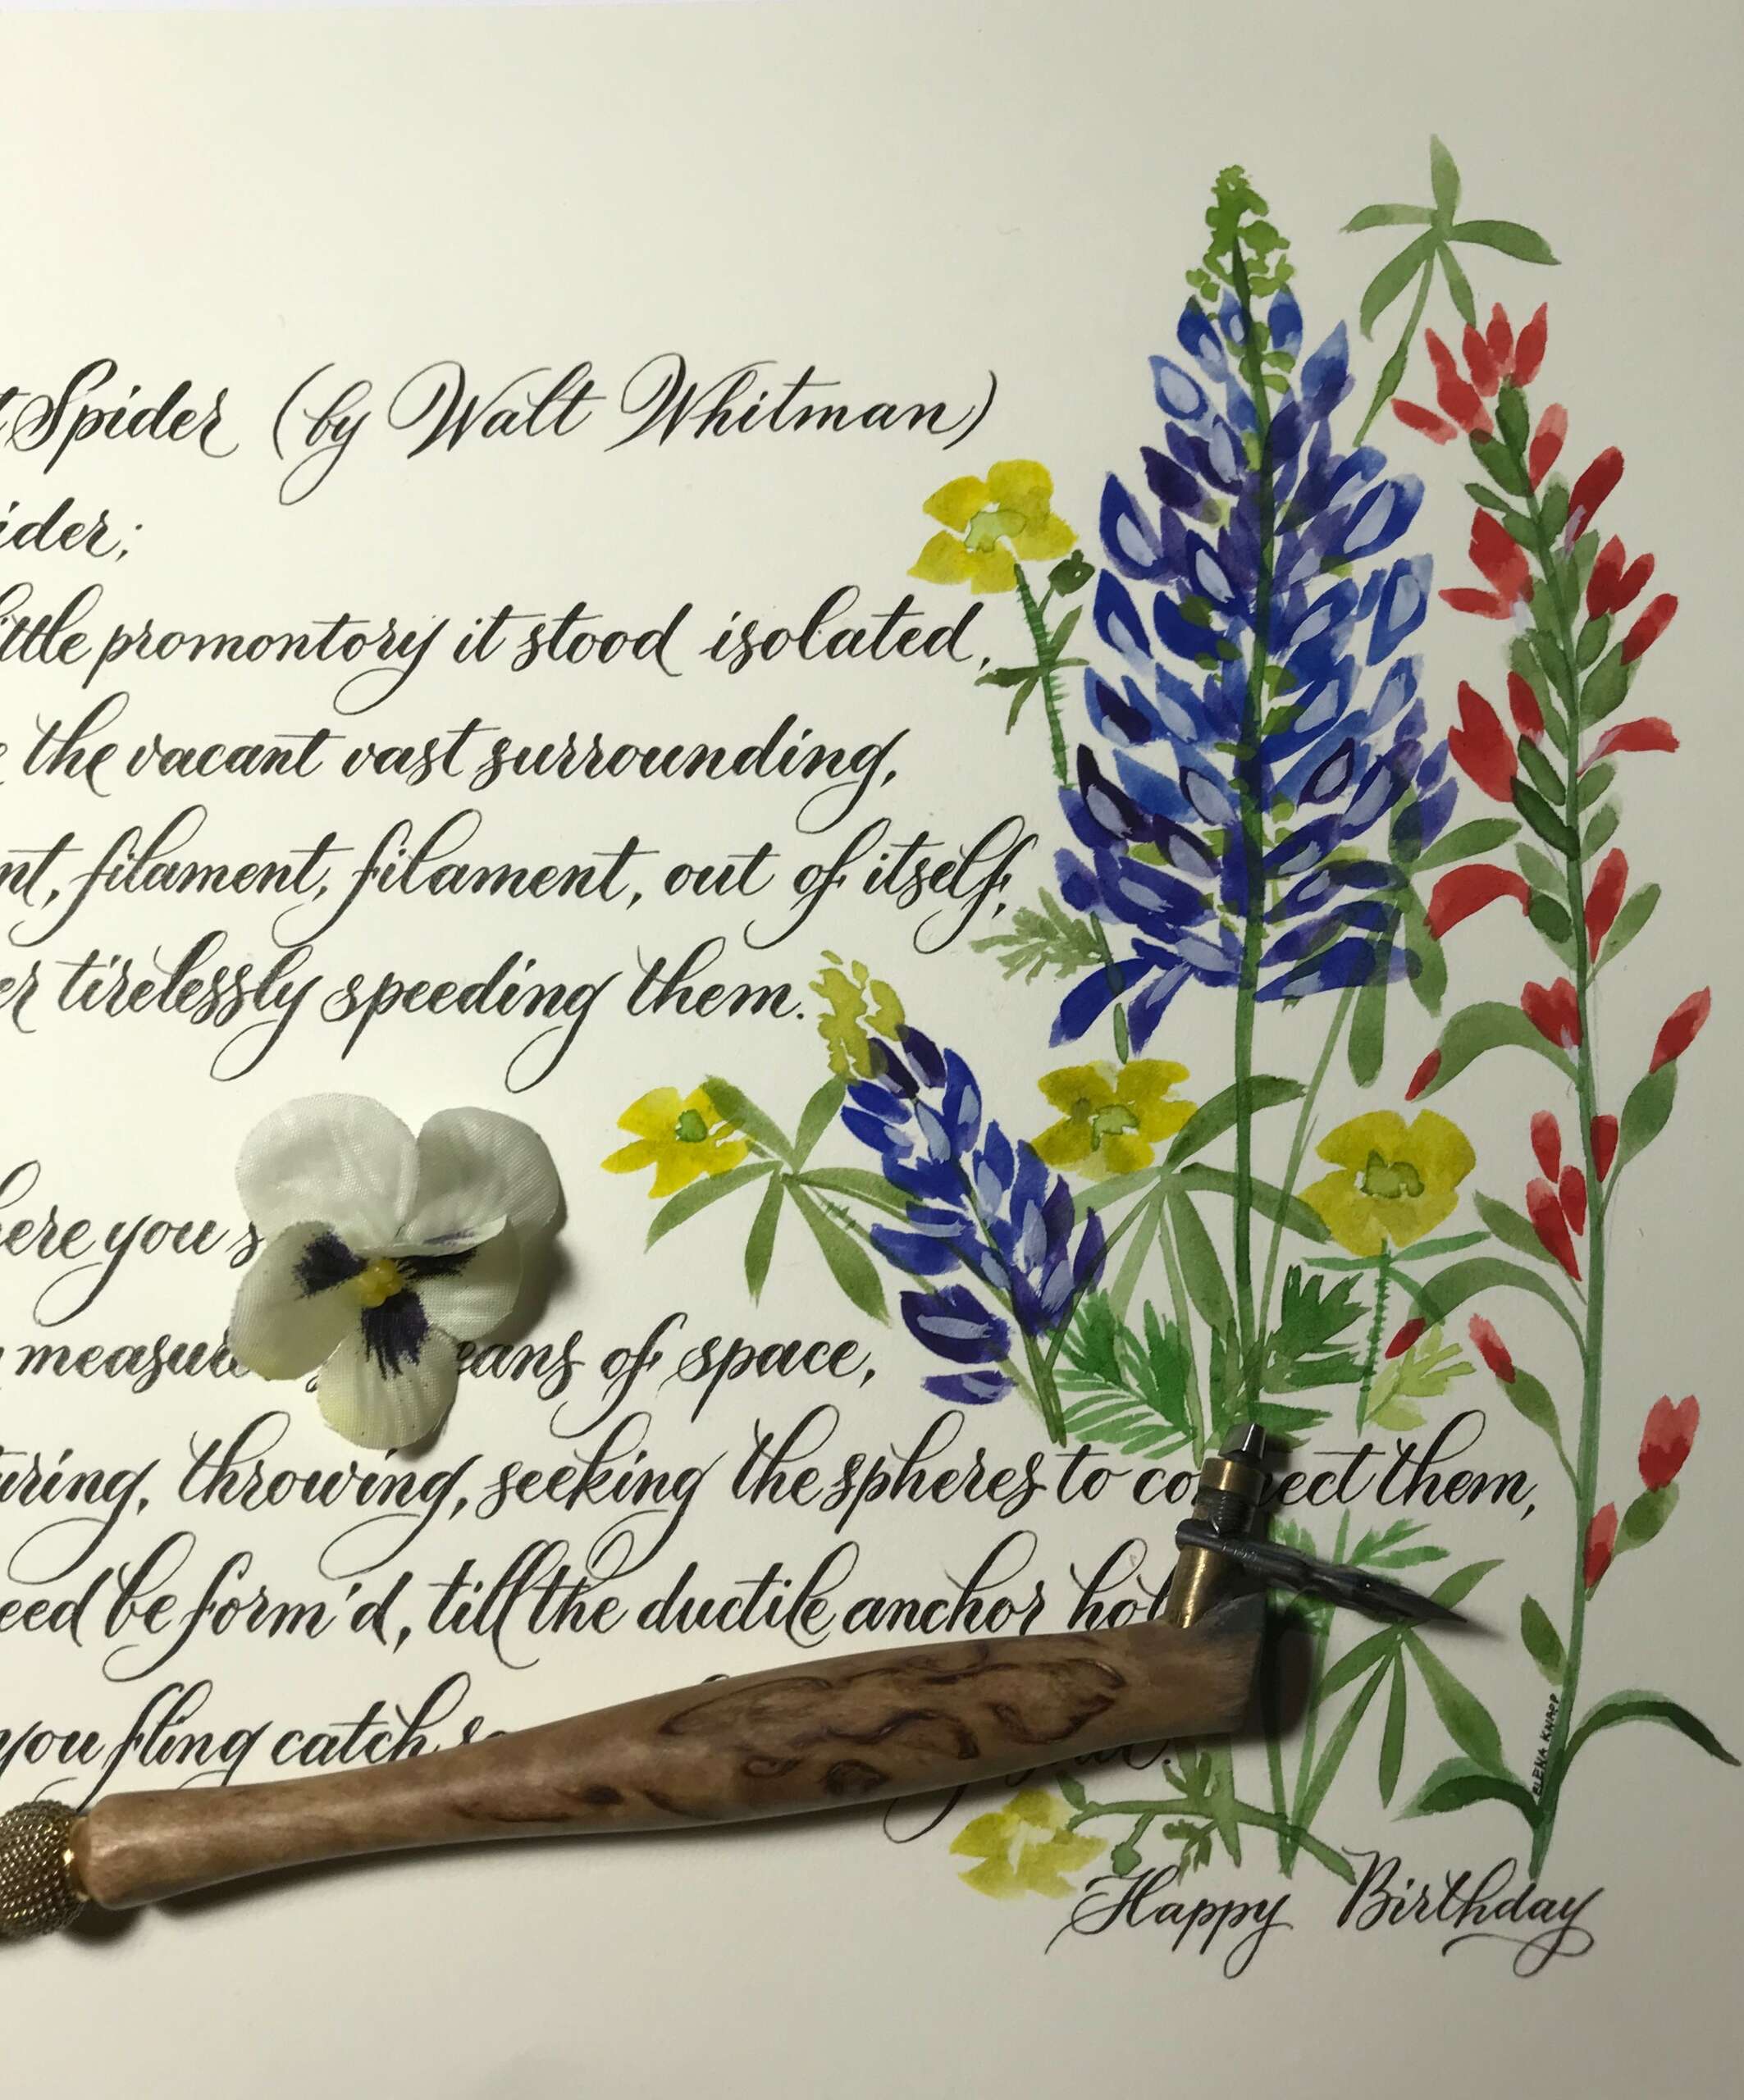 t Spider (by Walt Whitman)
ider;
ittle promontory it stood isolated,
the vacant vast surrounding,
nt, filament, filament, out of itself;
er tirelessly speeding them.
here you s
measure eans of space,
uring, throwing, seeking the spheres to co nect them,
eed be form'd, till the ductile anchor hol
you fling catch so
ELENA KNAPP
Happy Birthday